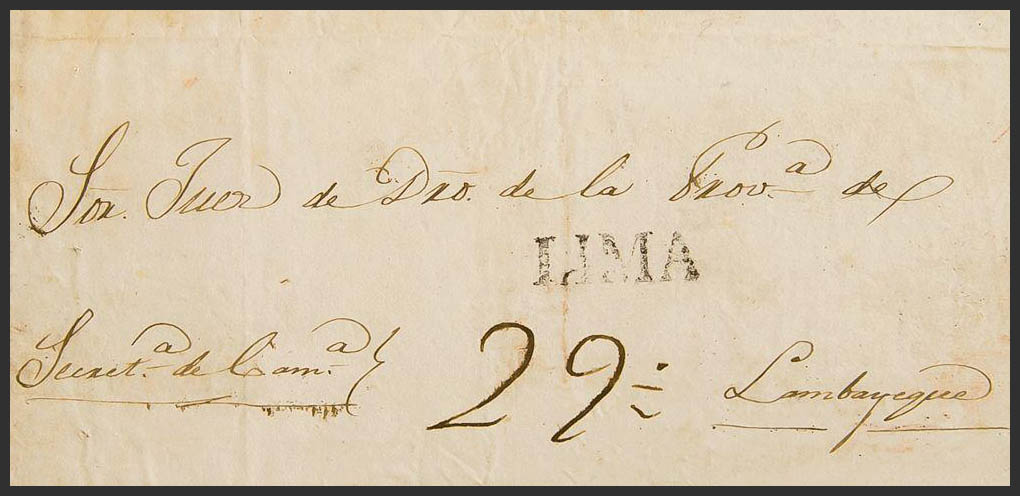 Sor. Juez de Dro. de la Prova. de
LIMA
Secreta. de Cama.
29
Lambayeque